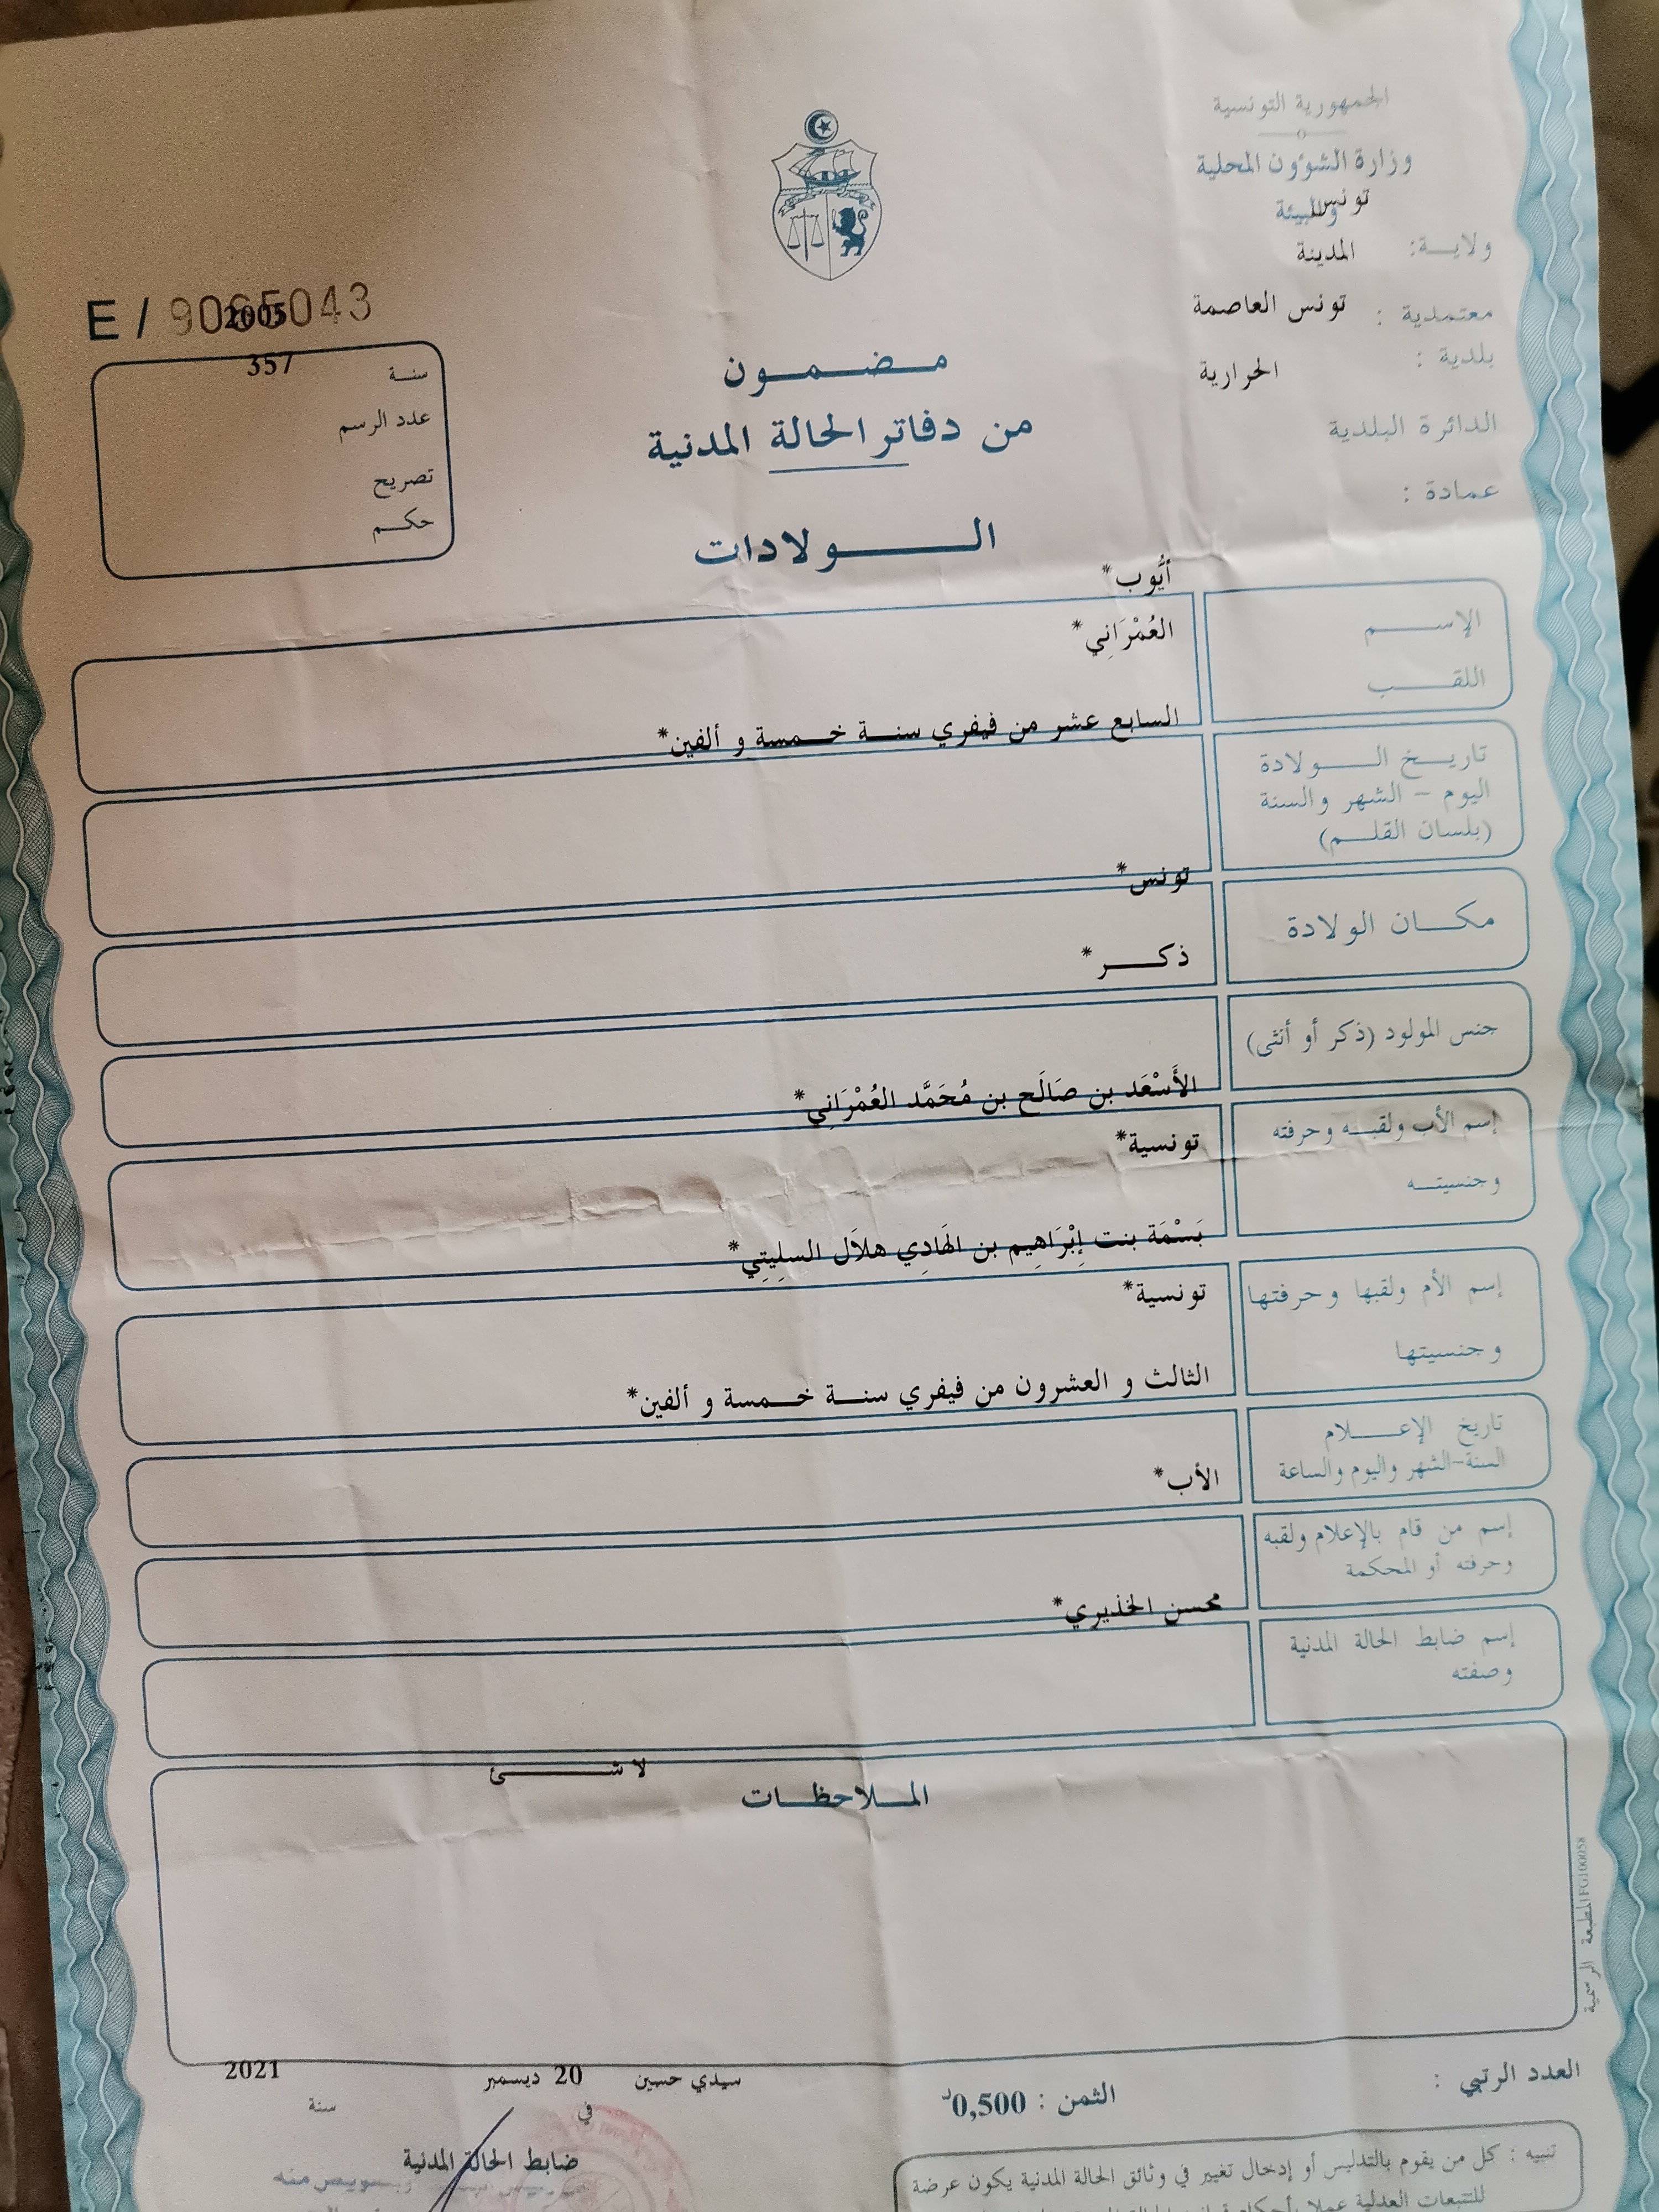 الجمهورية التونسية
وزارة الشؤون المحلية
والبيئة
تونس
ولايــة:
المدينة
معتمدية :
تونس العاصمة
بلدية :
الحرارية
الدائرة البلدية
عمادة :
E / 9065043
2005
357
سنـة
عدد الرسم
تصريح
حكـم
مـضـمـون
من دفاتر الحالة المدنية
الـولادات
أيُّوب*
الإسـم
العُمْرَانِي*
اللقـب
السابع عشر من فيفري سنـة خـمسة و ألفين*
تاريـخ الـولادة
اليوم - الشهر والسنة
(بلسان القلـم)
تونس*
مكـان الولادة
ذكـر*
جنس المولود (ذكر أو أنثى)
الأَسْعَد بن صَالَح بن مُحَمَّد العُمْرَانِي*
إسم الأب ولقبـه وحرفته
تونسية*
وجنسيتـه
بَسْمَة بنت إِبْرَاهِيم بن الهَادِي هلاَل السلِيتِي*
إسم الأم ولقبها وحرفتها
تونسية*
وجنسيتها
الثالث و العشرون من فيفري سنـة خـمسة و ألفين*
تاريخ الإعـلام
السنة-الشهر واليوم والساعة
الأب*
إسم من قام بالإعلام ولقبه
وحرفته أو المحكمة
محسن الخذيري*
إسم ضابط الحالة المدنية
وصفته
لا شـئ
المـلاحظـات
المطبعة الرسمية
العدد الرتبي :
الثمن : 0,500د
سيدي حسين 20 ديسمبر 2021
في
سنة
ضابط الحالة المدنية
وبتفويض منه
تنبيه : كل من يقوم بالتدليس أو إدخال تغيير في وثائق الحالة المدنية يكون عرضة
للتتبعات العدلية عملا بأحكام